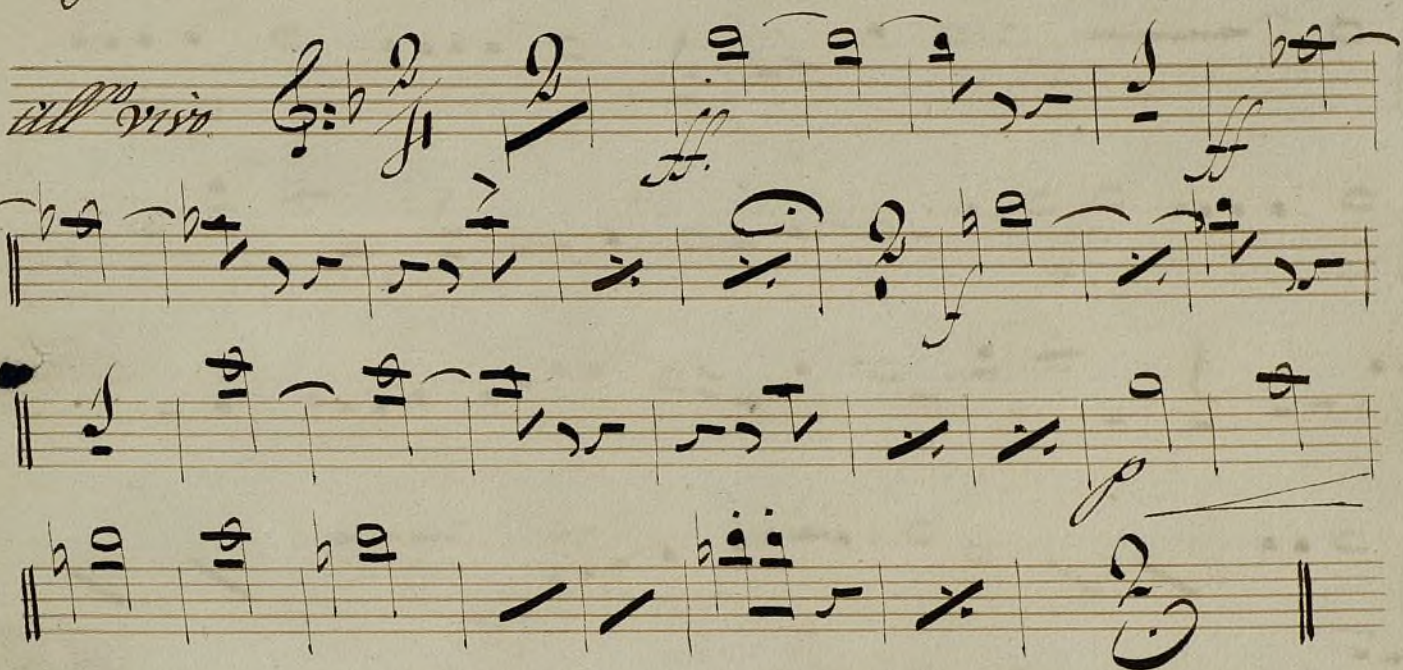 all.º vivo 2/4 2 ff. 1 ff
2 f
1 p
2